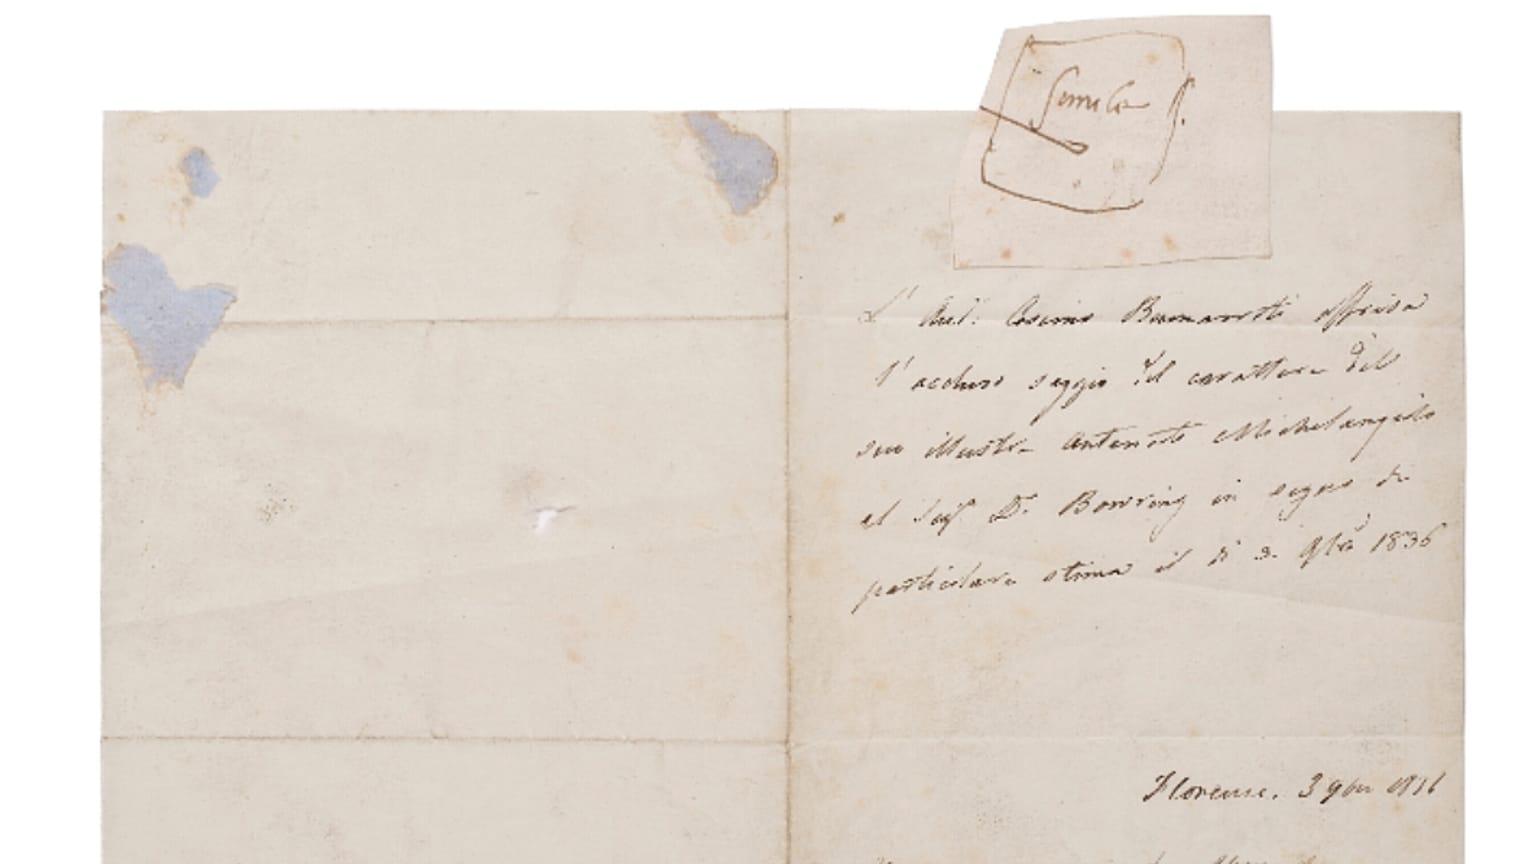 simile
L' Aud.e Cosimo Buonarroti offriva
l' accluso saggio del carattere del
suo illustre Antenato Michelangelo
al Sig.r D.r Bowring in segno di
particolare stima il dì 3. 9bre 1836
Florence. 3 9bre 1836